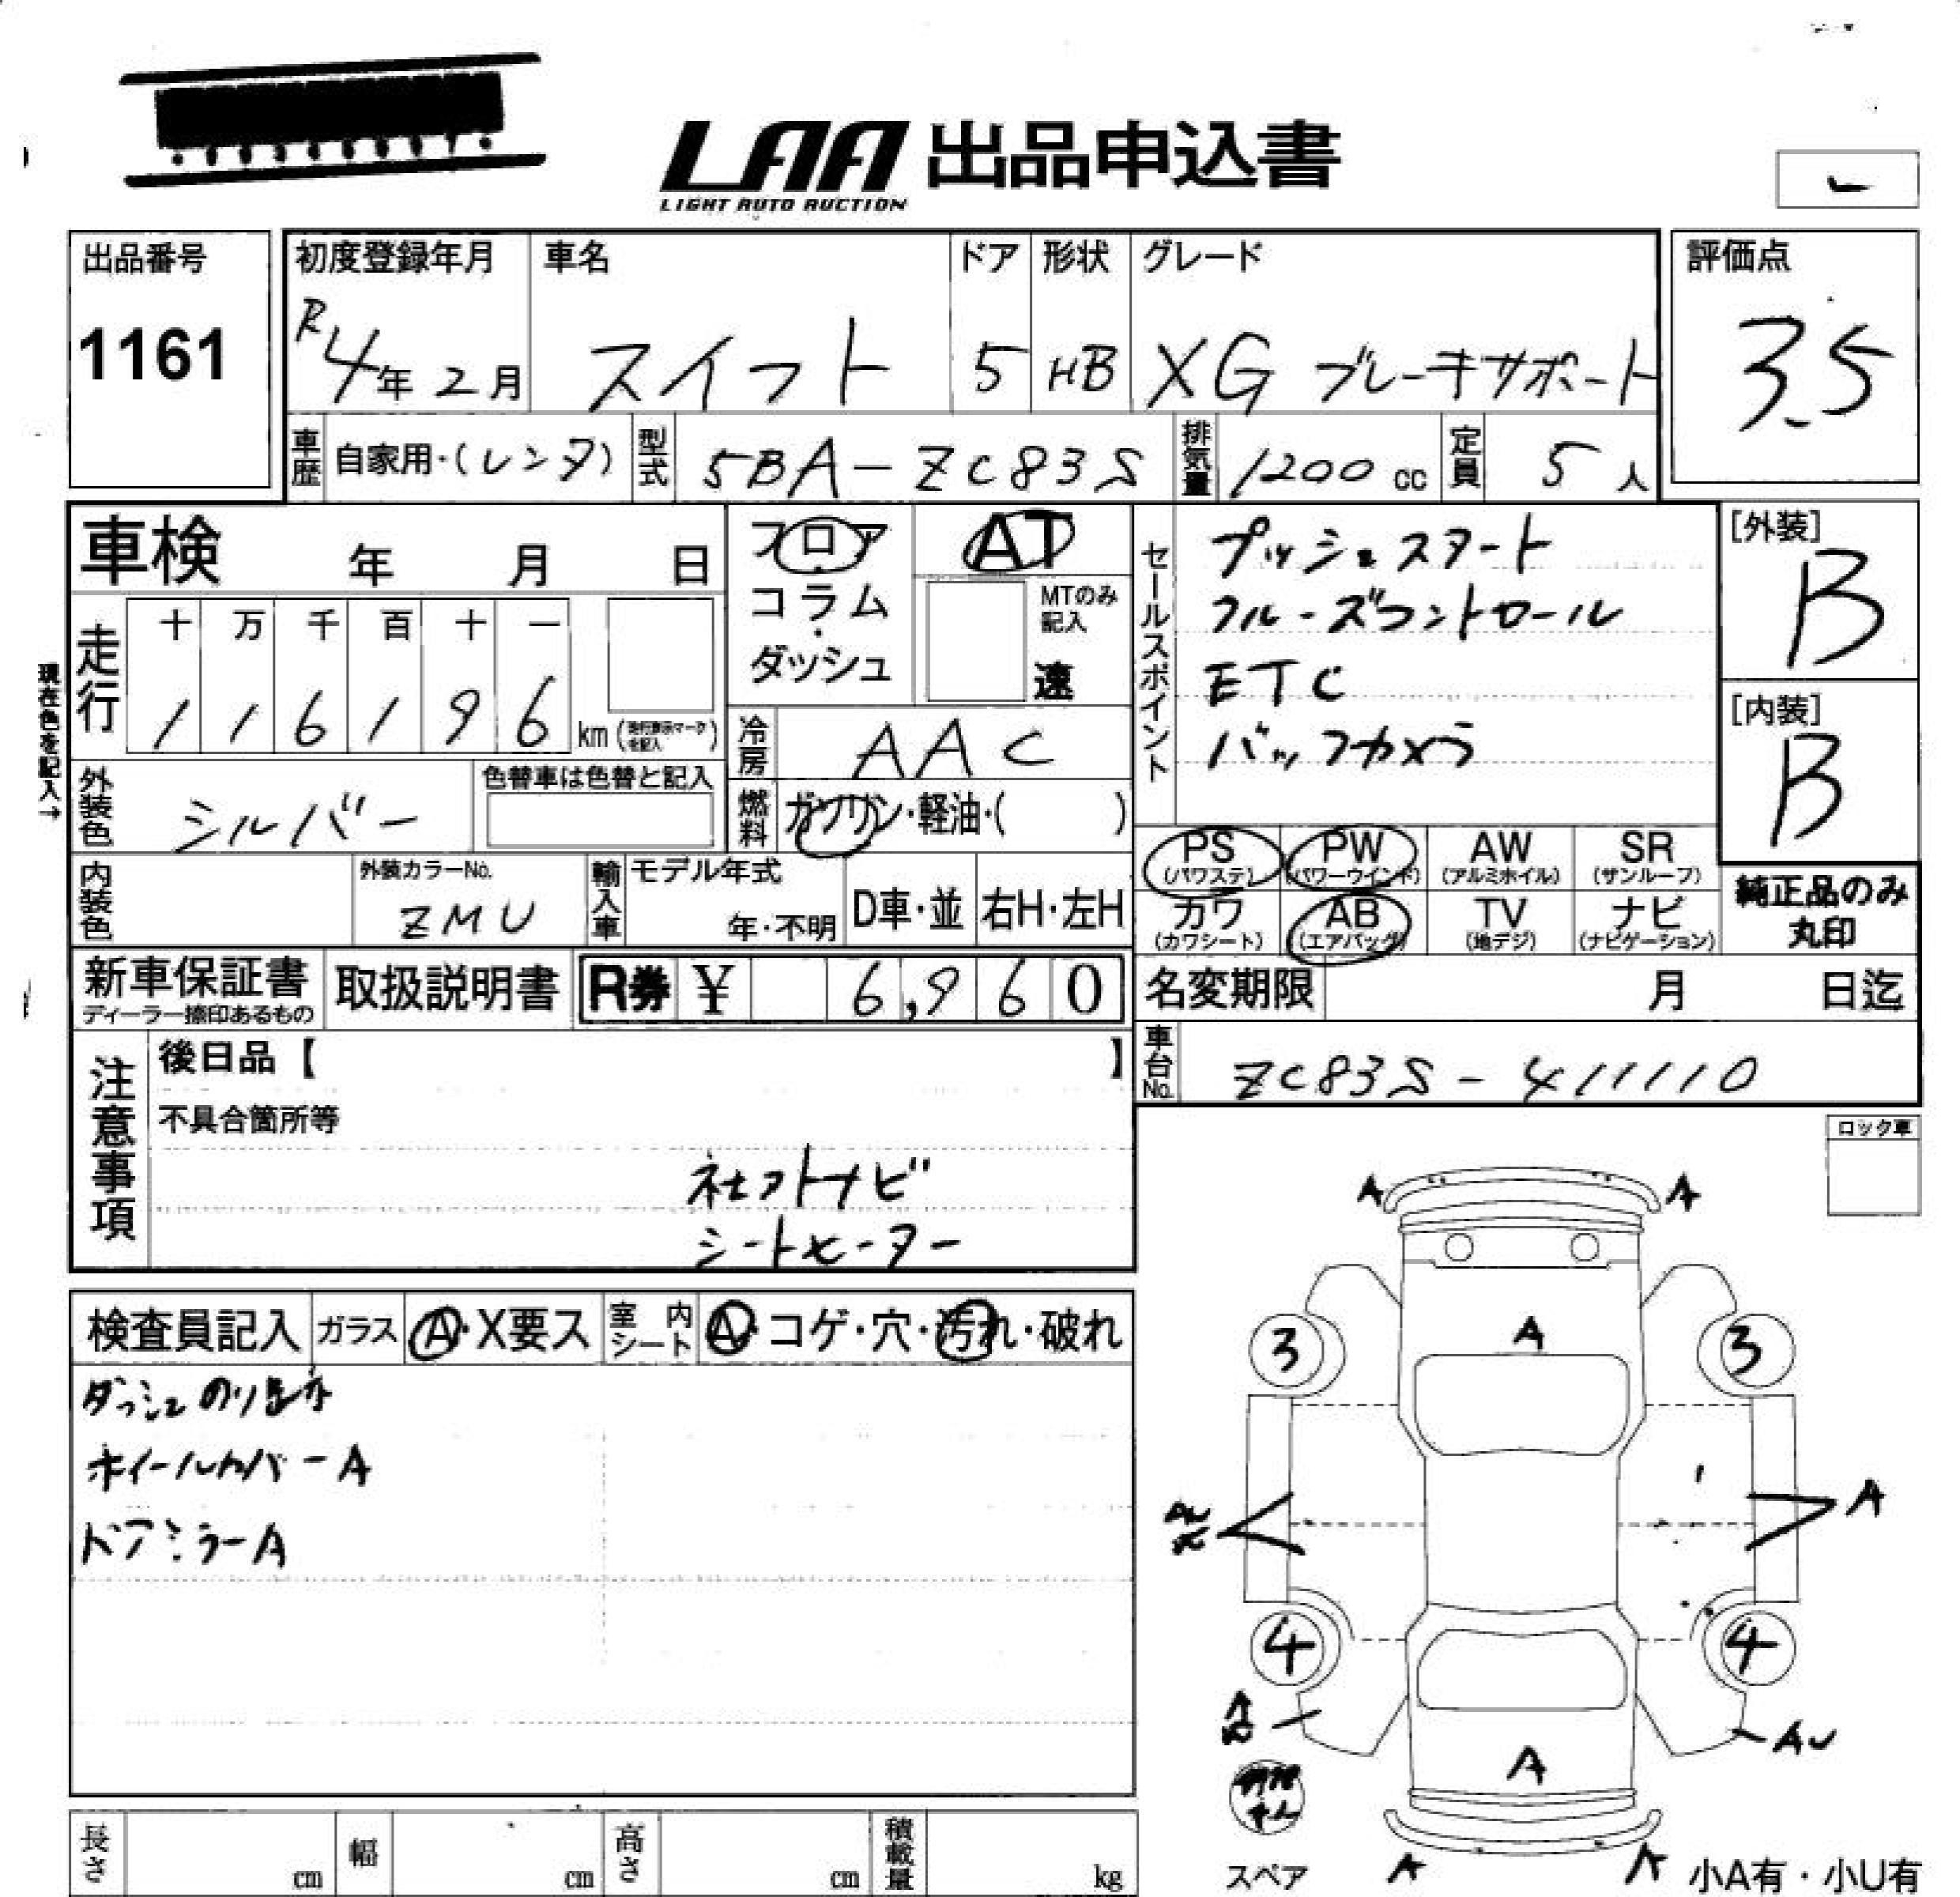 LAA 出品申込書
LIGHT AUTO AUCTION
出品番号
1161
初度登録年月
R4年2月
車名
スイフト
ドア
5
形状
HB
グレード
XG ブレーキサポート
評価点
3.5
車歴 自家用・(レンタ)
型式 5BA-ZC83S
排気量 1200cc
定員 5人
車検 年 月 日
走行
十 万 千 百 十 一
1 1 6 1 9 6 km
現在色を記入→
外装色 シルバー
色替車は色替と記入
フロア
コラム
ダッシュ
AT
MTのみ記入
速
冷房 AAC
燃料 ガソリン・軽油・( )
セールスポイント
プッシュスタート
クルーズコントロール
ETC
バックカメラ
[外装]
B
[内装]
B
内装色
外装カラーNo.
ZMU
輸入車
モデル年式
年・不明
D車・並
右H・左H
PS (パワステ)
PW (パワーウインド)
AW (アルミホイル)
SR (サンルーフ)
カワ (カワシート)
AB (エアバッグ)
TV (地デジ)
ナビ (ナビゲーション)
純正品のみ
丸印
新車保証書
ディーラー捺印あるもの
取扱説明書
R券 ¥ 6,960
名変期限 月 日迄
車台No. ZC83S-411110
注意事項
後日品【 】
不具合箇所等
社外ナビ
シートヒーター
ロック車
検査員記入
ガラス A・X要ス
室内シート A・コゲ・穴・汚れ・破れ
ホイールカバーA
ドアミラーA
A A
3 A 3
A
4 4
AU
A
A A
スペア
小A有・小U有
長さ cm
幅 cm
高さ cm
積載量 kg